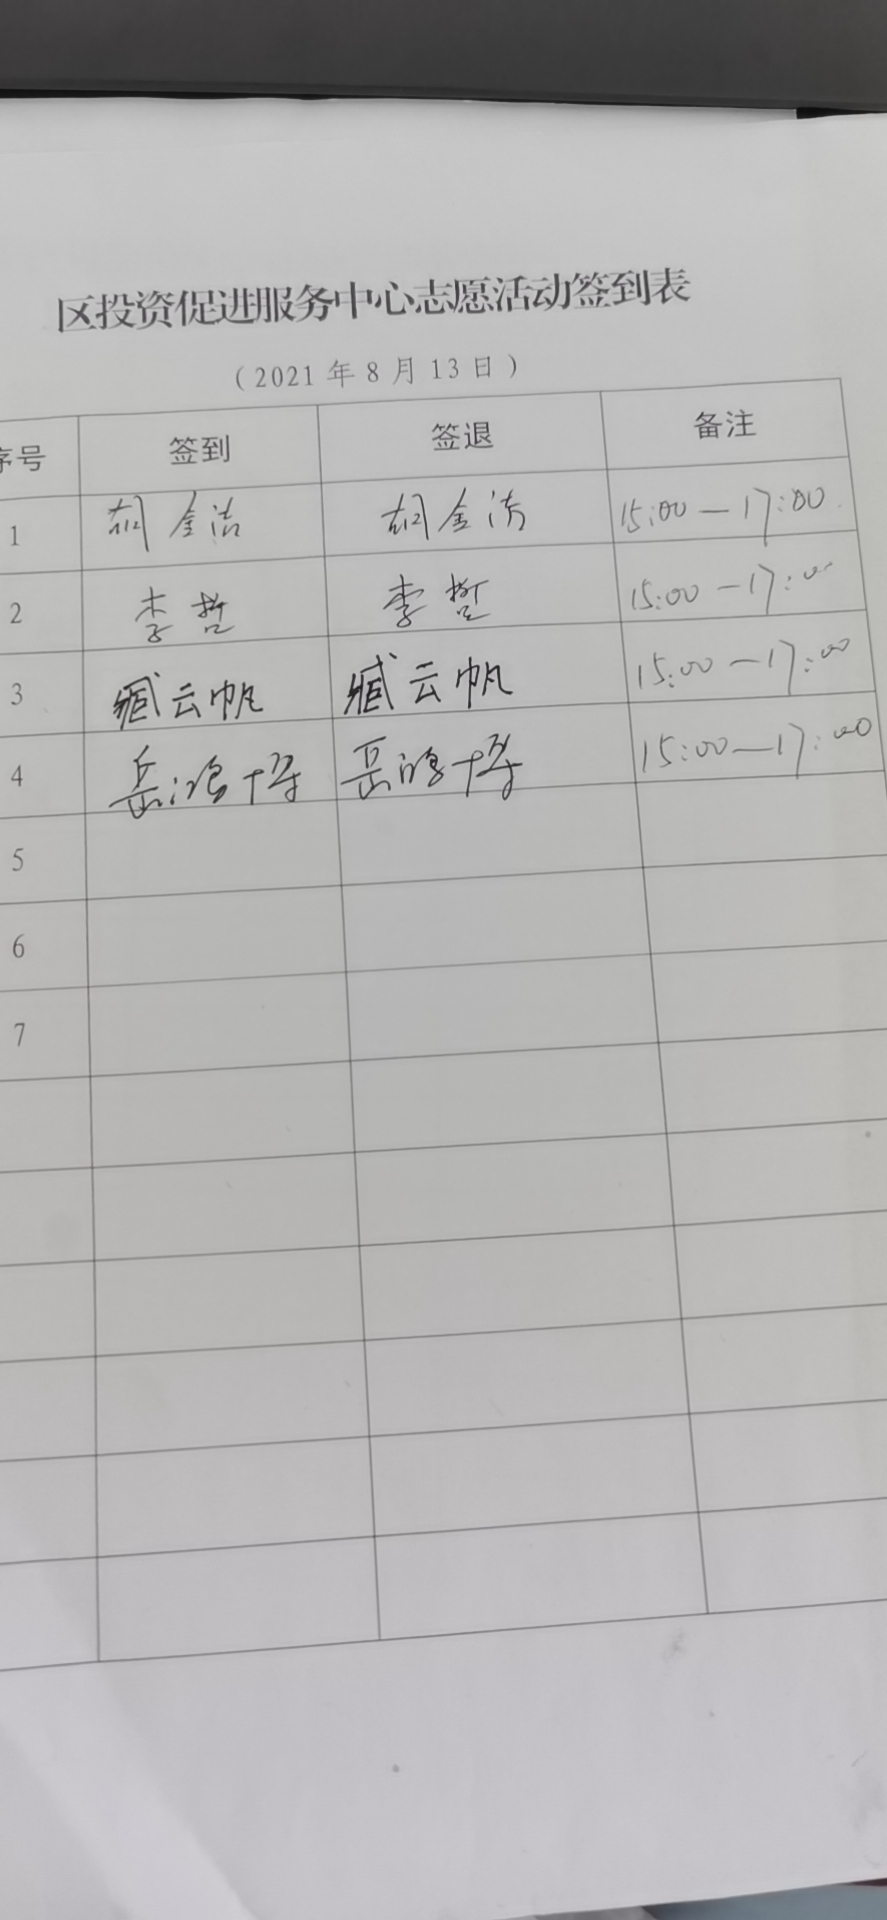 区投资促进服务中心志愿活动签到表
（2021年8月13日）
序号 签到 签退 备注
1 胡金洁 胡金洁 15:00—17:00
2 李哲 李哲 15:00—17:00
3 臧云帆 臧云帆 15:00—17:00
4 岳鸿博 岳鸿博 15:00—17:00
5
6
7